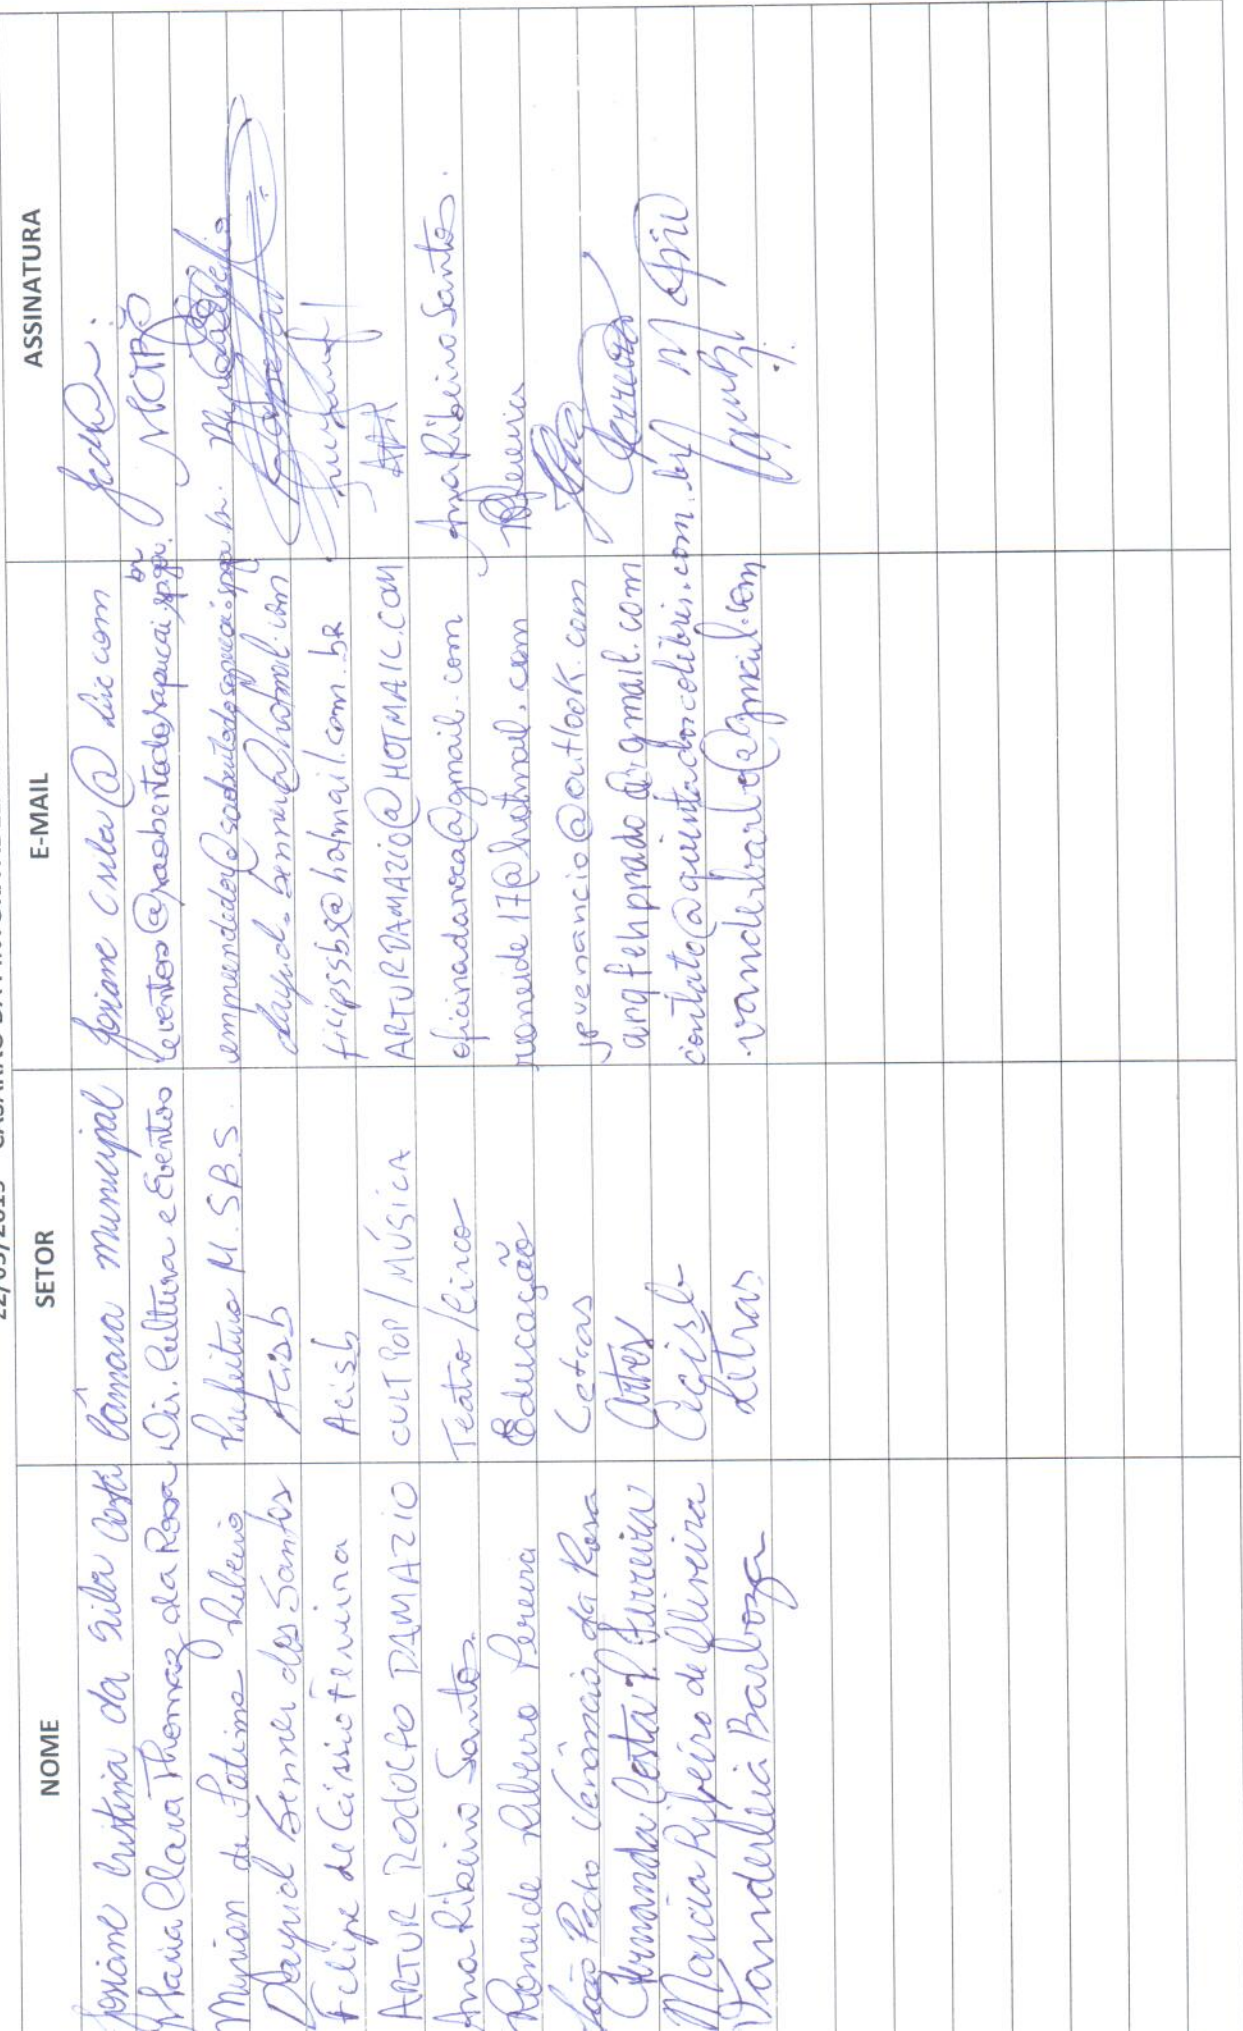 22/05/2019
NOME SETOR E-MAIL ASSINATURA
Josiane Cristina da Silva Costa Câmara Municipal
Maria Clara Thomaz da Rosa Dir. Cultura e Eventos
Myrian de Fatima Ribeiro Prefeitura M. S.B.S.
Dayvid Benner dos Santos Acisb dayvid.benner@hotmail.com
Felipe de Cássio Ferreira Acisb filipssbs@hotmail.com.br
ARTUR RODOLFO DAMAZIO CULT POP / MÚSICA ARTURDAMAZIO@HOTMAIL.COM
Ana Ribeiro Santos. Teatro / Circo oficinadanoca@gmail.com Ana Ribeiro Santos.
Roneide Ribeiro Pereira Educação roneide17@hotmail.com
João Pedro Venâncio da Rosa Letras jpvenancio@outlook.com
Fernanda Costa P. Ferreira Artes arqfehprado@gmail.com Ferreira
Marcia Ribeiro de Oliveira Acisb contato@quintadoscolibris.com.br
Vanderléia Barboza Letras vanderbarbo@gmail.com